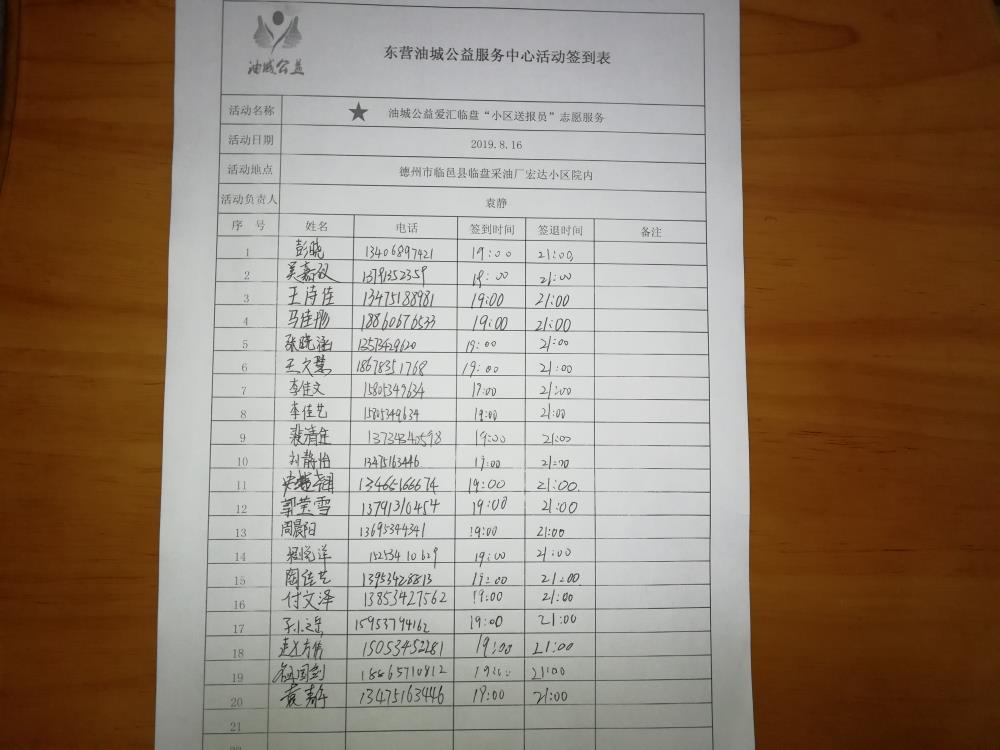 油城公益
东营油城公益服务中心活动签到表
活动名称 ★ 油城公益爱汇临盘“小区送报员”志愿服务
活动日期 2019.8.16
活动地点 德州市临邑县临盘采油厂宏达小区院内
活动负责人 袁静
序 号 姓名 电话 签到时间 签退时间 备注
1 彭晓 13406897421 19:00 21:00
2 吴嘉 13791352359 19:00 21:00
3 王诗佳 13475188981 19:00 21:00
4 马佳彤 18860676533 19:00 21:00
5 张晓涵 13573429620 19:00 21:00
6 王文慧 18678351768 19:00 21:00
7 李佳文 15805349634 19:00 21:00
8 李佳艺 15805349634 19:00 21:00
9 裴清 13734340598 19:00 21:00
10 刘静怡 13475163446 19:00 21:00
11 13465166674 19:00 21:00
12 郭莹雪 13791310454 19:00 21:00
13 周晨阳 13695344341 19:00 21:00
14 15253410629 19:00 21:00
15 陶佳艺 13953428813 19:00 21:00
16 付文泽 13853427562 19:00 21:00
17 15953794162 19:00 21:00
18 赵 15053452281 19:00 21:00
19 18865710812 19:00 21:00
20 袁静 13475163446 19:00 21:00
21